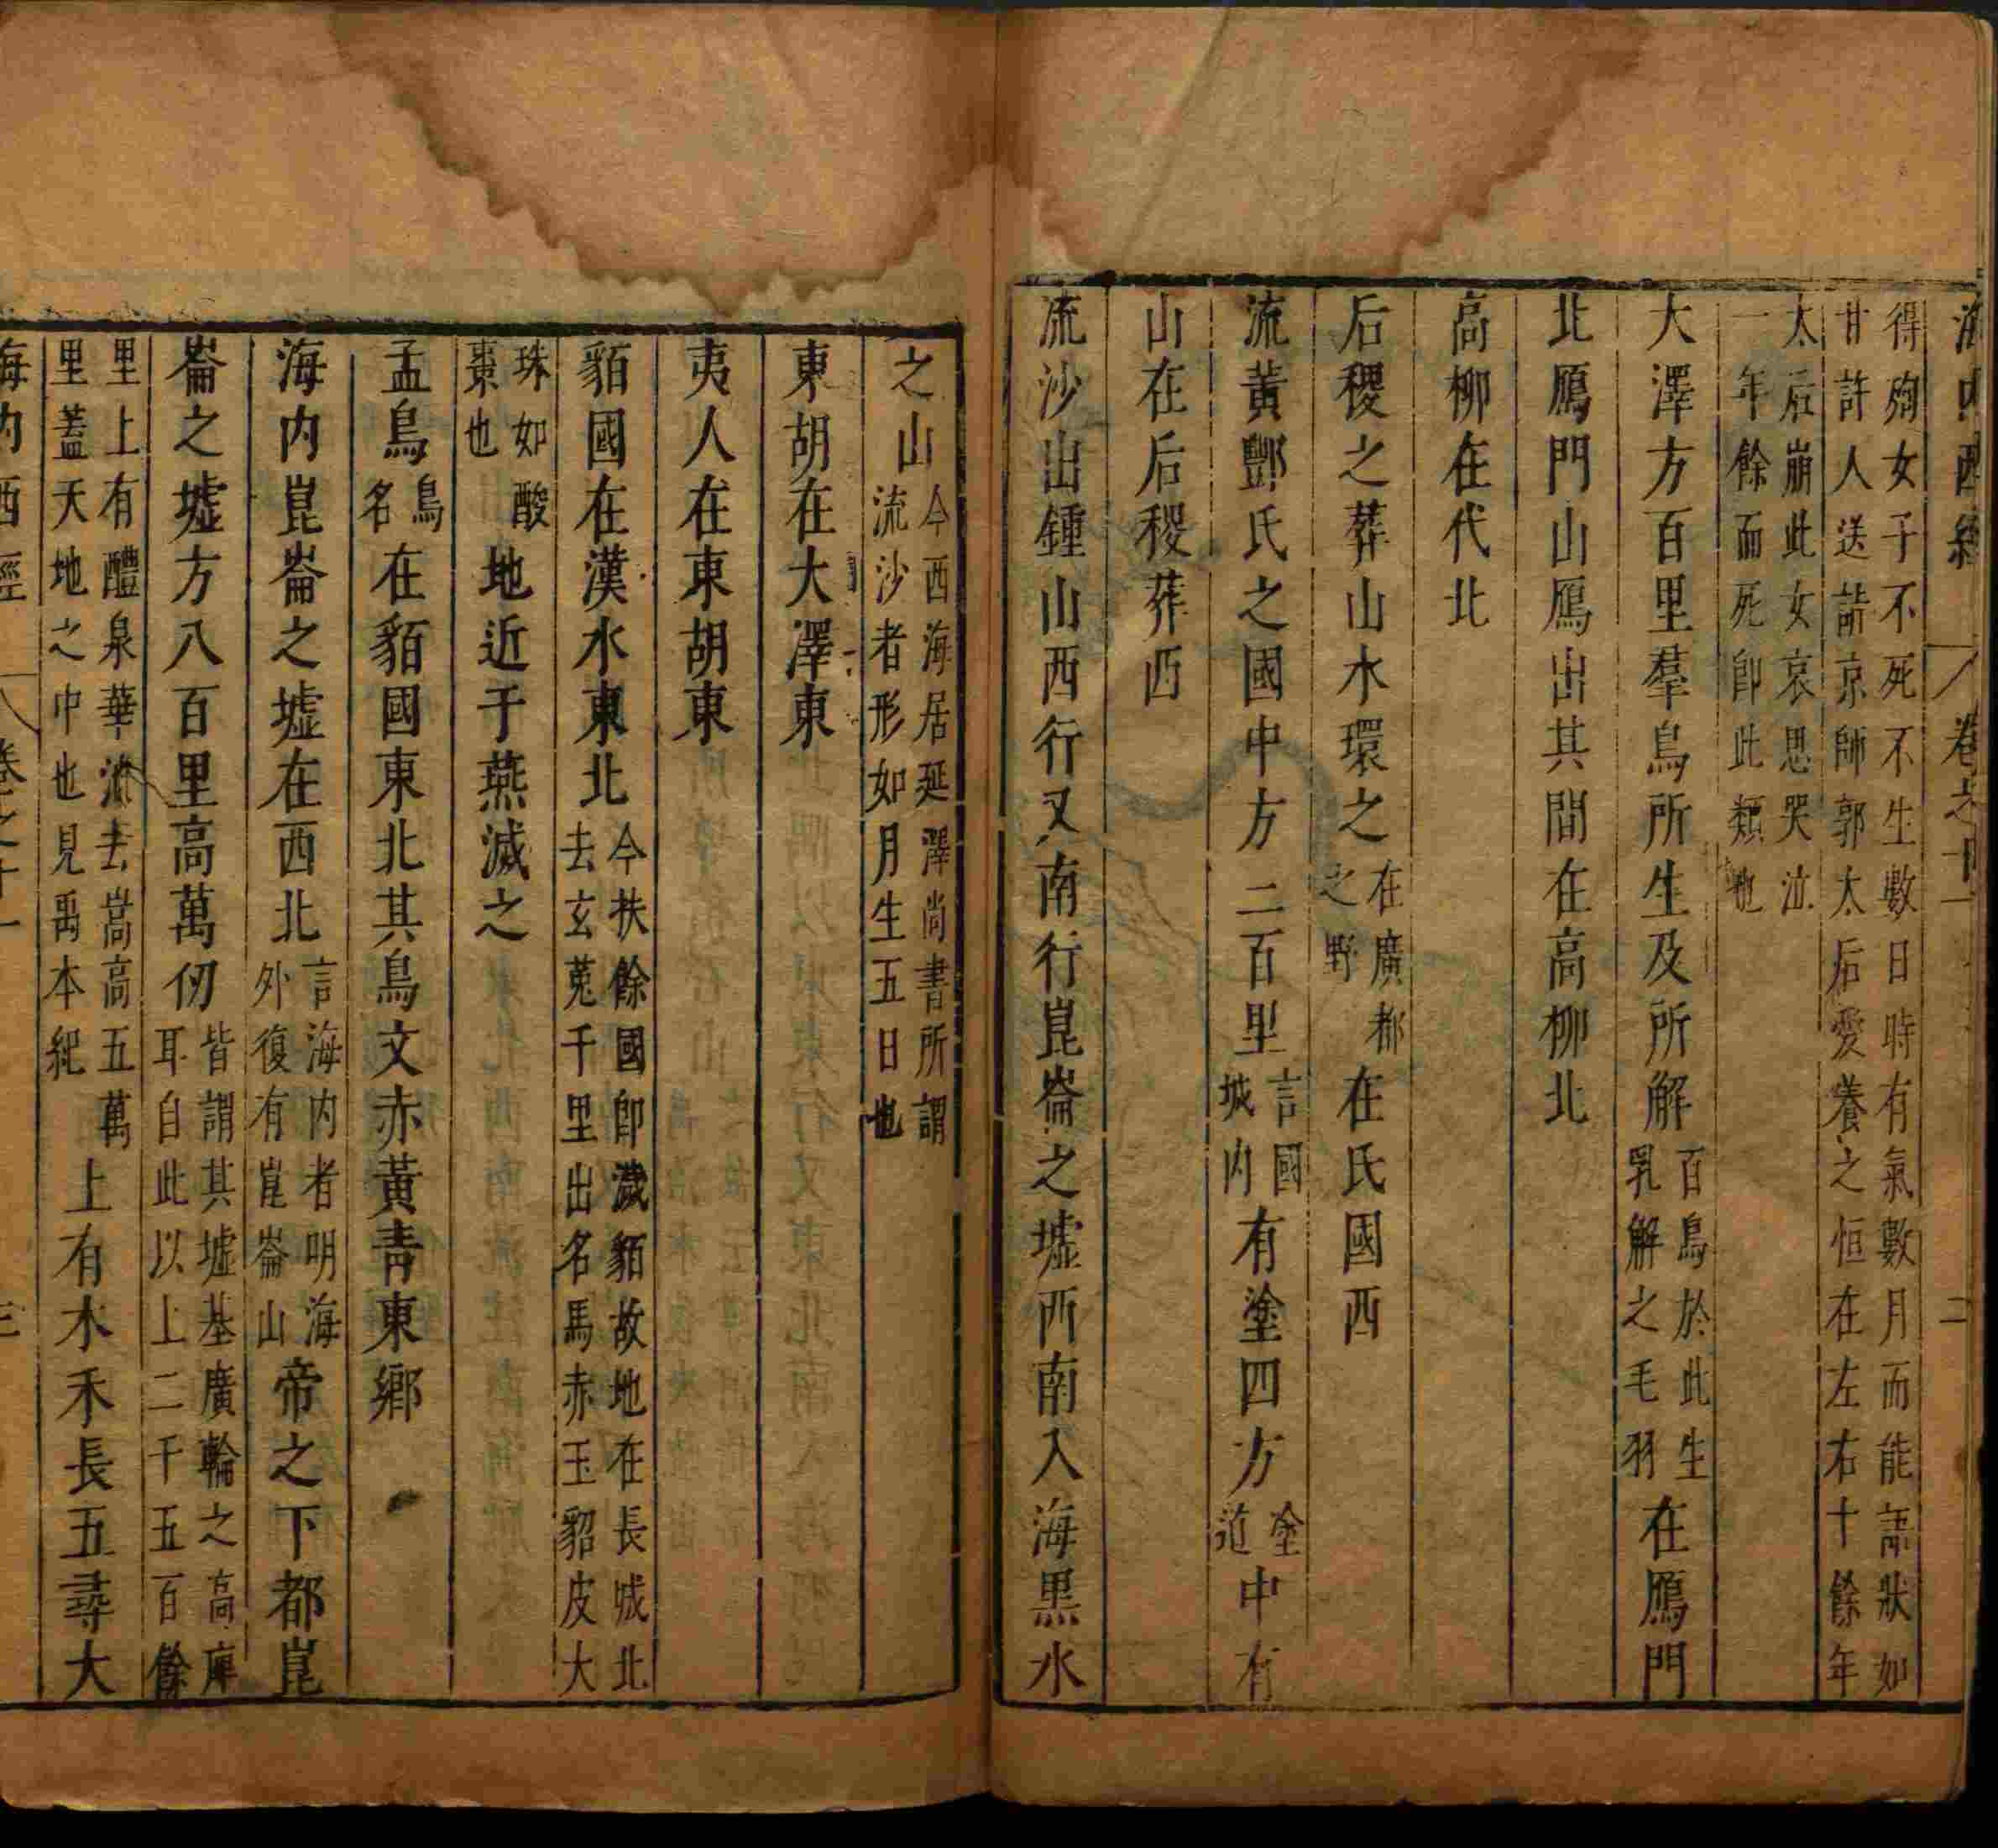 海内西經 卷之十一 二
得殉女子不死不生數日時有氣數月而能語狀如
甘許人送詣京師郭太后愛養之恒在左右十餘年
太后崩此女哀思哭泣
一年餘而死卽此類也
大澤方百里羣鳥所生及所解百鳥於此生乳解之毛羽在鴈門
北鴈門山鴈出其間在高柳北
高柳在代北
后稷之葬山水環之在廣都之野在氐國西
流黃酆氏之國中方二百里言國城内有塗四方塗道中有
山在后稷葬西
流沙出鍾山西行又南行崑崙之墟西南入海黑水
之山今西海居延澤尚書所謂流沙者形如月生五日也
東胡在大澤東
夷人在東胡東
貊國在漢水東北今扶餘國卽濊貊故地在長城北去玄菟千里出名馬赤玉貂皮大
珠如酸棗也地近于燕滅之
孟鳥鳥名在貊國東北其鳥文赤黃青東鄉
海内崑崙之墟在西北言海内者明海外復有崑崙山帝之下都崑
崙之墟方八百里高萬仞皆謂其墟基廣輪之高庳耳自此以上二千五百餘
里上有醴泉華池去嵩高五萬里蓋天地之中也見禹本紀上有木禾長五尋大
海内西經 卷之十一 三